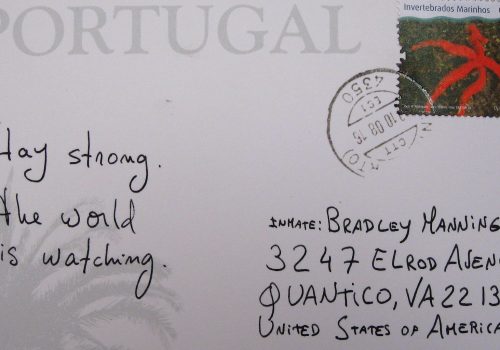 PORTUGAL
Invertebrados Marinhos
4350
CTT
tay strong.
the world
is watching.
INMATE: BRADLEY MANNING
3247 ELROD AVEN
QUANTICO, VA 2213
UNITED STATES OF AMERICA